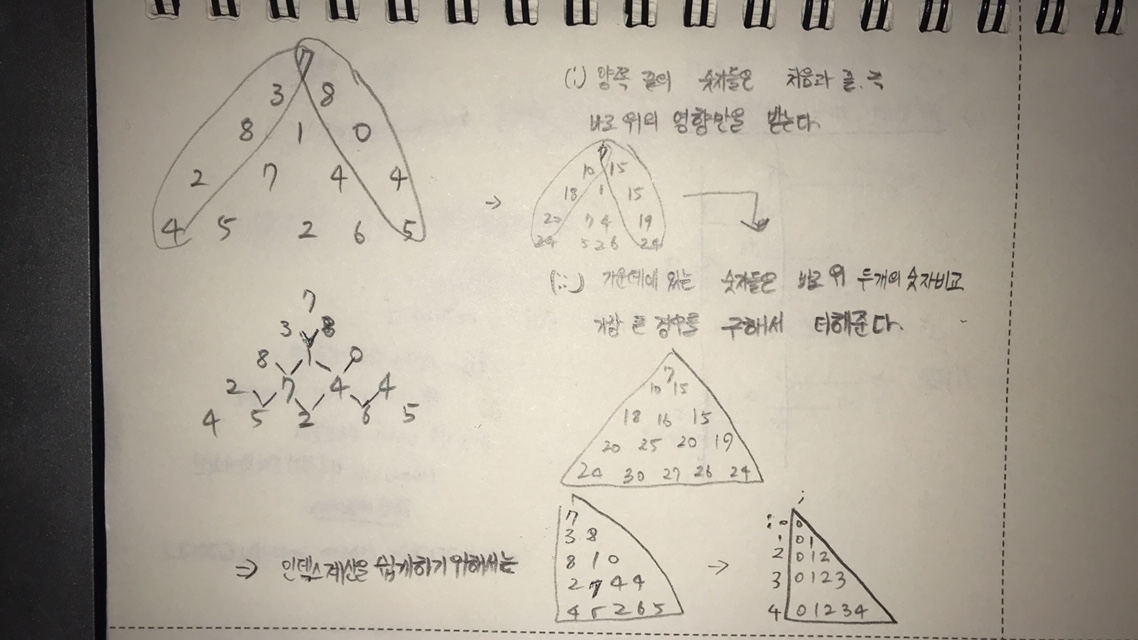 7
3 8
8 1 0
2 7 4 4
4 5 2 6 5
(i) 양쪽 끝의 숫자들은 처음과 끝. 즉
바로 위의 영향만을 받는다.
→
7
10 15
18 1 15
20 7 4 19
24 5 2 6 24
(ii) 가운데에 있는 숫자들은 바로 위 두개의 숫자비교
가장 큰 경우를 구해서 더해준다.
7
3 8
8 1 0
2 7 4 4
4 5 2 6 5
7
10 15
18 16 15
20 25 20 19
24 30 27 26 24
⇒ 인덱스계산을 쉽게하기 위해서는
7
3 8
8 1 0
2 7 4 4
4 5 2 6 5
→
j
i 0 0
1 0 1
2 0 1 2
3 0 1 2 3
4 0 1 2 3 4